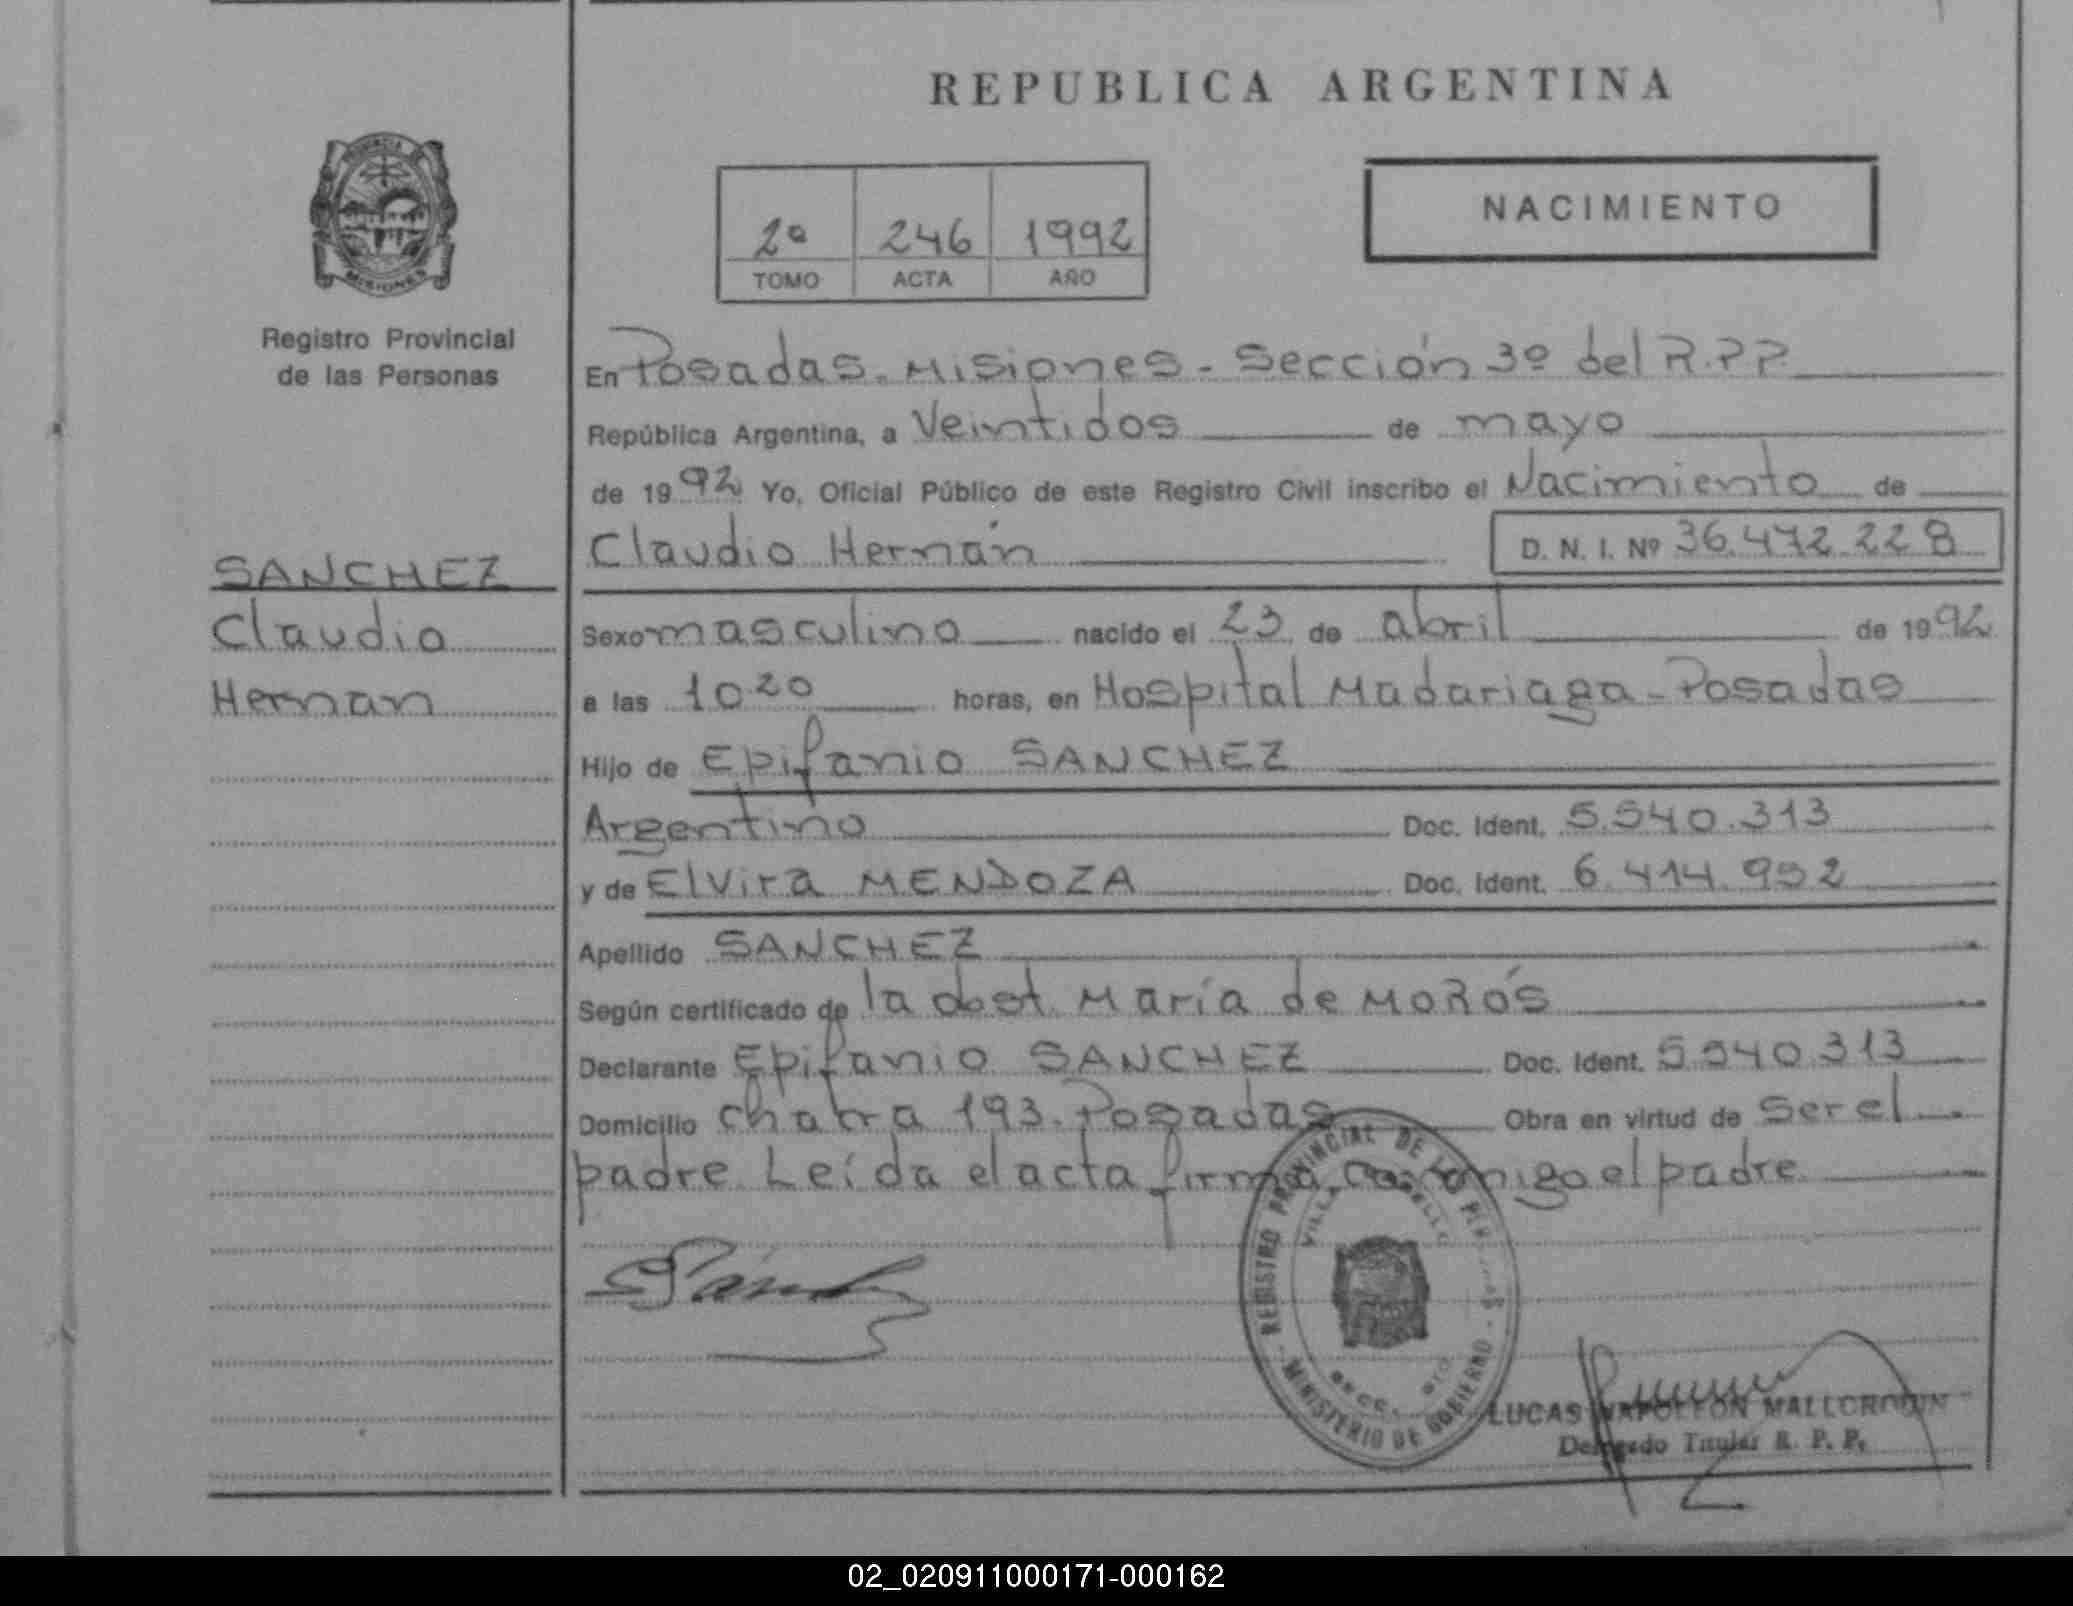 REPUBLICA ARGENTINA
PROVINCIA DE
MISIONES
Registro Provincial
de las Personas
2º 246 1992
TOMO ACTA AÑO
NACIMIENTO
En Posadas. Misiones - Sección 3º del R.P.P.
República Argentina, a Veintidos de mayo
de 1992 Yo, Oficial Público de este Registro Civil inscribo el Nacimiento de
Claudio Hernán D. N. I. Nº 36.472.228
SANCHEZ
Claudio
Hernan
Sexo masculino nacido el 23 de abril de 1992
a las 10 20 horas, en Hospital Madariaga - Posadas
Hijo de Epifanio SANCHEZ
Argentino Doc. Ident. 5.540.313
y de Elvira MENDOZA Doc. Ident. 6.414.952
Apellido SANCHEZ
Según certificado de la obst. María de MOROS
Declarante Epifanio SANCHEZ Doc. Ident. 5.540.313
Domicilio chakra 193. Posadas Obra en virtud de Ser el
padre. Leída el acta firma conmigo el padre
REGISTRO PROVINCIAL DE LAS PERSONAS
VILLA
MINISTERIO DE GOBIERNO
LUCAS NAPOLEON MALLCROWN
Delegado Titular R. P. P.
02_020911000171-000162